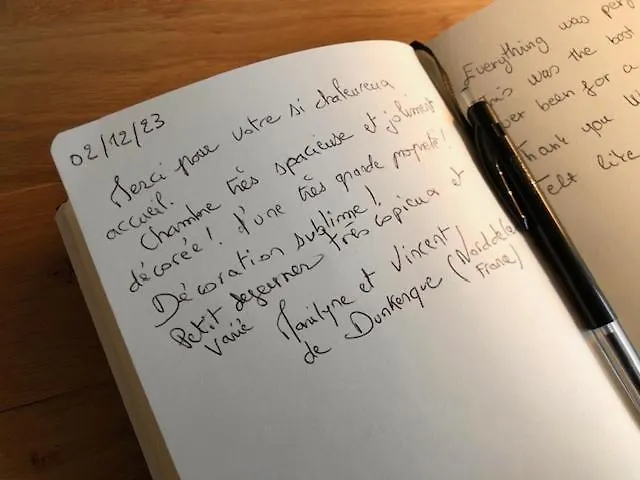 02/12/23
Merci pour votre si chaleureux
accueil.
Chambre très spacieuse et joliment
décorée! d'une très grande propreté!
Décoration sublime!
Petit dejeuner très copieux et
varié
Marilyne et Vincent
de Dunkerque (Nord de la
France)
Everything was perf
this was the best
ever been for a
Thank you W
Felt like